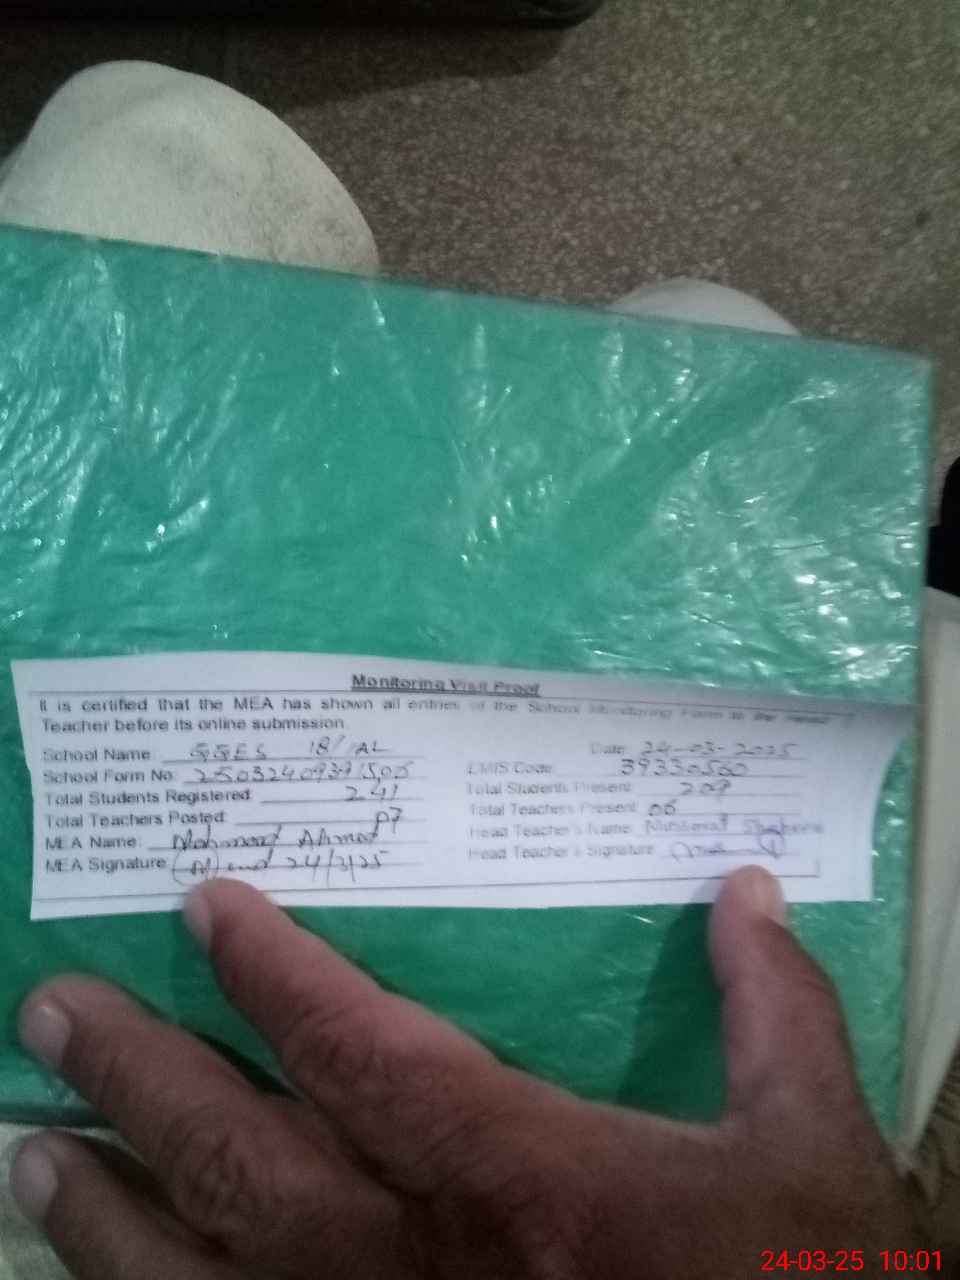 Monitoring Visit Proof
It is certified that the MEA has shown all entries of the School Monitoring Form to the Head
Teacher before its online submission.
School Name: GGES 18/1AL Date: 24-03-2025
School Form No: EMIS Code: 39330560
Total Students Registered: 241 Total Students Present: 209
Total Teachers Posted: 07 Total Teachers Present: 06
MEA Name: Mahmood Ahmad Head Teacher's Name: Nusserat
MEA Signature: 24/3/25 Head Teacher's Signature:
24-03-25 10:01